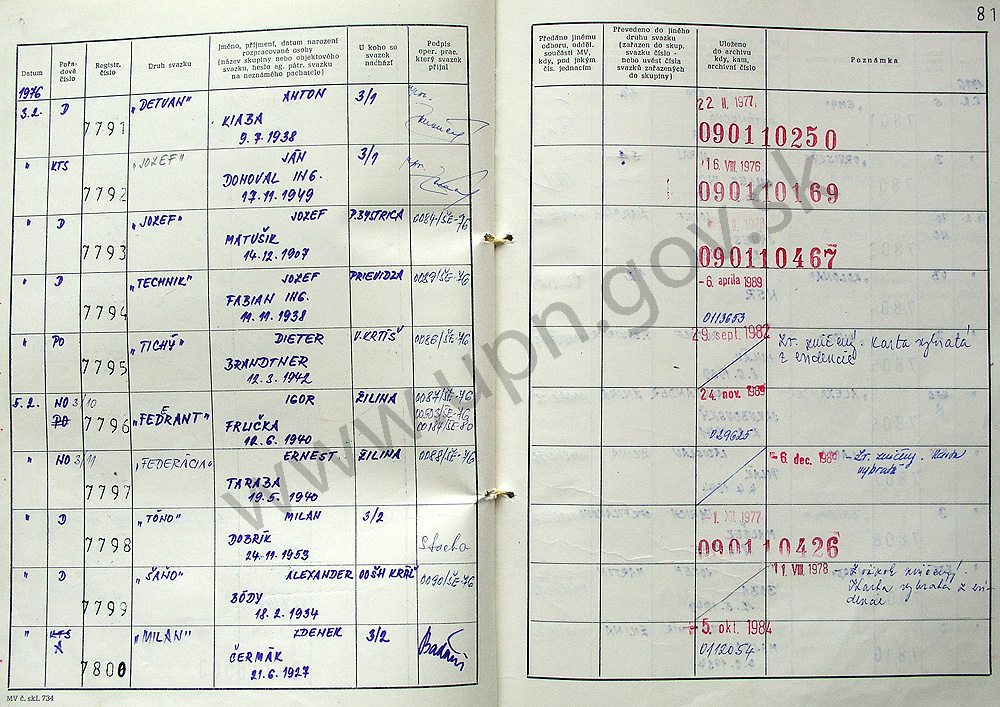 81
Datum
Pořa-
dové
číslo
Registr.
číslo
Druh svazku
Jméno, příjmení, datum narození
rozpracované osoby
(název skupiny nebo objektového
svazku, heslo ag. pátr. svazku
na neznámého pachatele)
U koho se
svazek
nachází
Podpis
oper. prac.
který svazek
přijal
Předáno jinému
odboru, odděl.
součásti MV,
kdy, pod jakým
čís. jednacím
Převedeno do jiného
druhu svazku
(zařazen do skup.
svazku číslo -
nebo uvést čísla
svazků zařazených
do skupiny)
Uloženo
do archivu
kdy, kam,
archivní číslo
Poznámka
1976
3.2. D 7791 „DETVAN" ANTON 3/1
KIABA
9.7.1938
22 II. 1977
090110250
" KTS 7792 „JOZEF" JÁN 3/1
DONOVAL ING.
17.11.1949
16. VIII. 1976
090110169
" D 7793 „JOZEF" JOZEF P.BYSTRICA 0084/ŠE-76
MATUŠIK
14.12.1907
1978
090110467
" D 7794 „TECHNIK" JOZEF PRIEVIDZA 0089/ŠE-76
FABIAN ING.
11.11.1938
-6. apríla 1989
0113653
" PO 7795 „TICHÝ" DIETER V.KRTÍŠ 0086/ŠE-76
BRANDTNER
12.3.1942
29. sept. 1982
Zv. zničený. Karta vybratá
z evidencie
5.2. NO 3/10 7796 „FEDERANT" IGOR ŽILINA 0087/ŠE-76
PO
FRLIČKA
12.6.1940
24. nov. 1989
029625
" NO 3/11 7797 „FEDERÁCIA" ERNEST ŽILINA 0088/ŠE-76
TARABA
19.5.1940
-6. dec.
- Zv. zničený. Karta
vybratá
" D 7798 „TÓNO" MILAN 3/2
DOBRÍK
24.11.1953
Stacho
1977
090110426
" D 7799 „ŠAŇO" ALEXANDER OOŠH KRTÍŠ 0090/ŠE-76
BÓDY
18.2.1934
11. VIII. 1978
Zväzok zničený!
Karta vybratá z evi-
dencie
" KTS 7800 „MILAN" ZDENEK 3/2
A
ČERMÁK
21.6.1927
-5. okt. 1984
0112054
MV č. skl. 734
www.upn.gov.sk